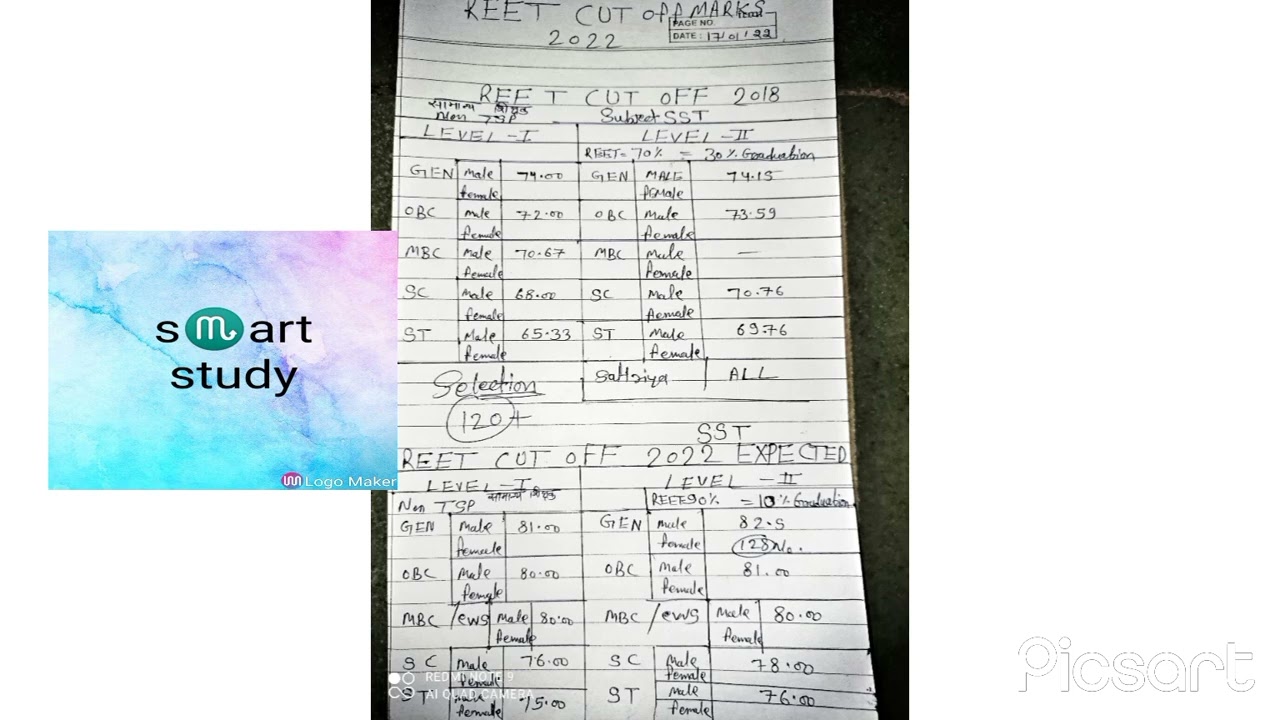 REET CUT OFF MARKS
PAGE NO.
2022
DATE: 17/01/22
REET CUT OFF 2018
सामान्य शिक्षक
Non TSP
Subject SST
LEVEL-I
LEVEL-II
REET=70% = 30% Graduation
GEN Male 74.00 GEN MALE 74.15
female FEMale
OBC Male 72.00 OBC Male 73.59
female female
MBC Male 70.67 MBC Male —
female female
SC Male 68.00 SC Male 70.76
female female
ST Male 65.33 ST Male 69.76
female female
Selection ALL
120+
SST
REET CUT OFF 2022 EXPECTED
LEVEL-I सामान्य शिक्षक LEVEL-II
Non TSP REET90% =10% Graduation
GEN Male 81.00 GEN male 82.5
female female 128 No.
OBC Male 80.00 OBC Male 81.00
female female
MBC/EWS Male 80.00 MBC/EWS Male 80.00
female female
SC Male 76.00 SC Male 78.00
female female
ST Male 75.00 ST Male 76.00
female female
smart
study
Logo Maker
REDMI NOTE 9
AI QUAD CAMERA
Picsart